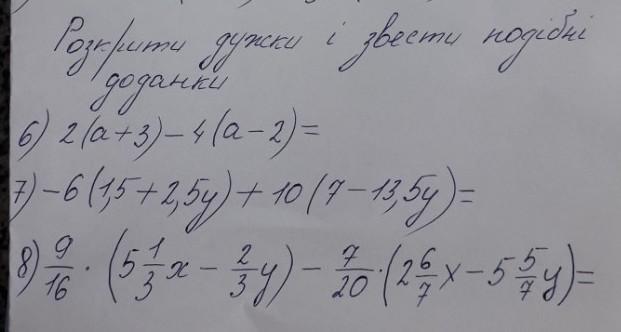 Розкрити дужки і звести подібні
доданки
6) 2(a+3)-4(a-2)=
7) -6(1,5+2,5y)+10(7-13,5y)=
8) 9/16 · (5 1/3 x - 2/3 y) - 7/20 · (2 6/7 x - 5 5/7 y)=